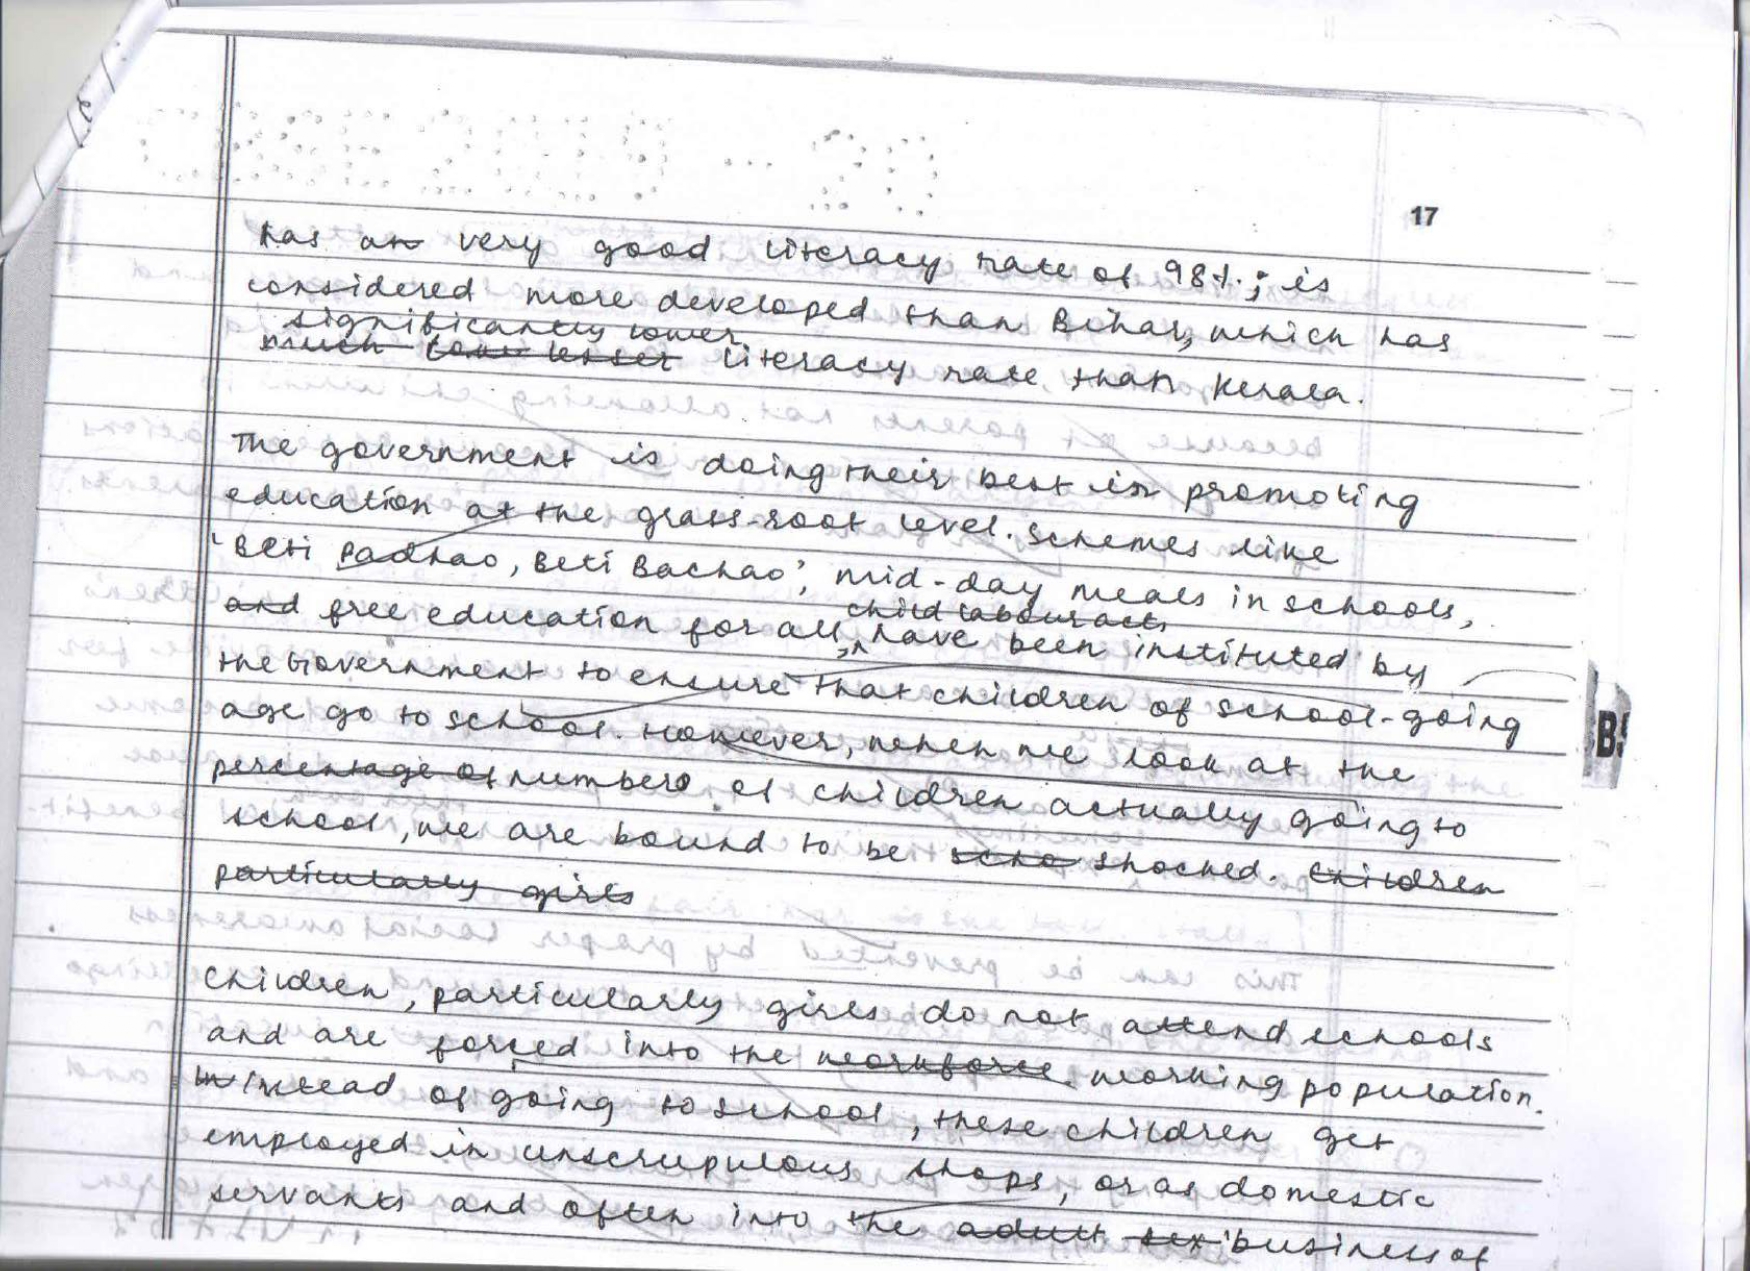 17
has an very good literacy rate of 98%; is
considered more developed than Bihar, which has
significantly lower
much lower lesser literacy rate than Kerala.
The government is doing their best in promoting
education at the grass-root level. Schemes like
'Beti Padhao, Beti Bachao', mid-day meals in schools,
and free education for all, child labour acts have been instituted by
the Government to ensure that children of school-going
age go to school. However, when we look at the
percentage of numbers of children actually going to
school, we are bound to be scho shocked. Children
particularly girls
Children, particularly girls do not attend schools
and are forced into the workforce working population.
In Instead of going to school, these children get
employed in unscrupulous shops, or as domestic
servants and often into the adult sex business of